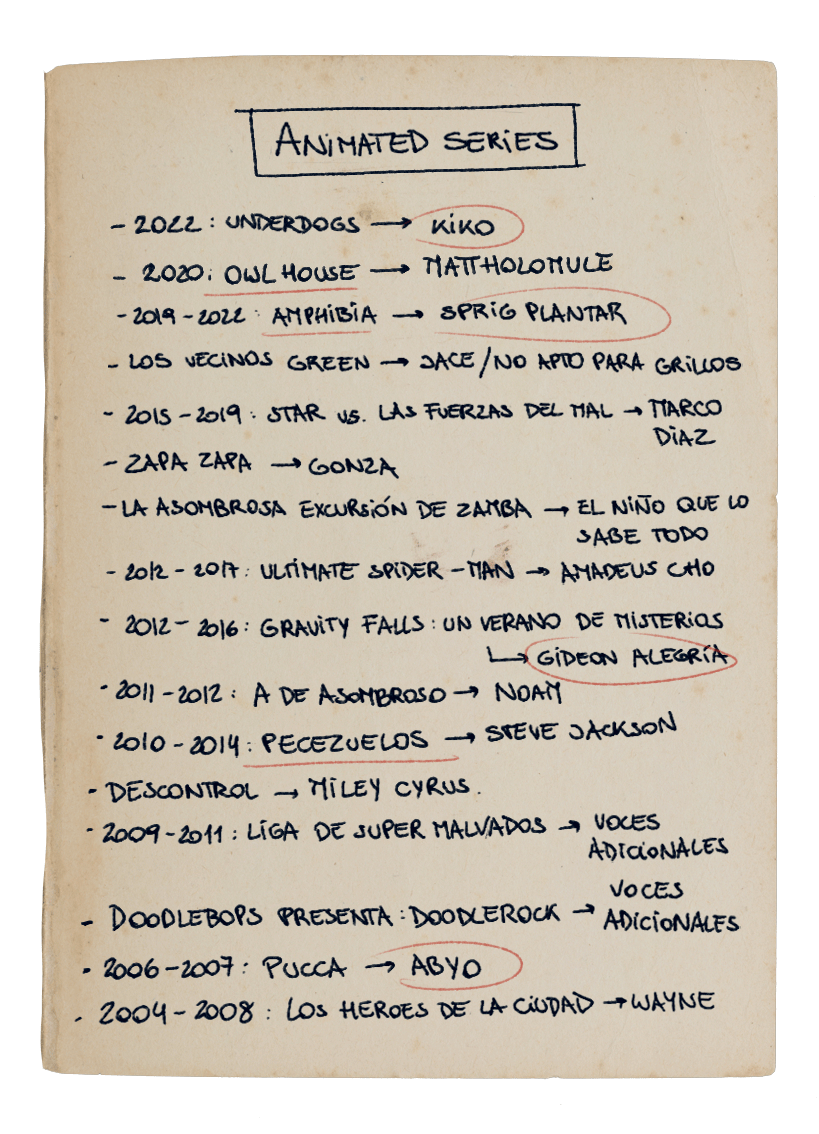 ANIMATED SERIES
- 2022: UNDERDOGS → KIKO
- 2020: OWL HOUSE → MATTHOLOMULE
- 2019 - 2022: AMPHIBIA → SPRIG PLANTAR
- LOS VECINOS GREEN → JACE / NO APTO PARA GRILLOS
- 2015 - 2019: STAR VS. LAS FUERZAS DEL MAL → MARCO
DIAZ
- ZAPA ZAPA → GONZA
- LA ASOMBROSA EXCURSIÓN DE ZAMBA → EL NIÑO QUE LO
SABE TODO
- 2012 - 2017: ULTIMATE SPIDER - MAN → AMADEUS CHO
- 2012 - 2016: GRAVITY FALLS: UN VERANO DE MISTERIOS
↳ GIDEON ALEGRÍA
- 2011 - 2012: A DE ASOMBROSO → NOAM
- 2010 - 2014: PECEZUELOS → STEVE JACKSON
- DESCONTROL → MILEY CYRUS.
- 2009 - 2011: LIGA DE SUPER MALVADOS → VOCES
ADICIONALES
- DOODLEBOPS PRESENTA: DOODLEROCK → VOCES
ADICIONALES
- 2006 - 2007: PUCCA → ABYO
- 2004 - 2008: LOS HEROES DE LA CIUDAD → WAYNE